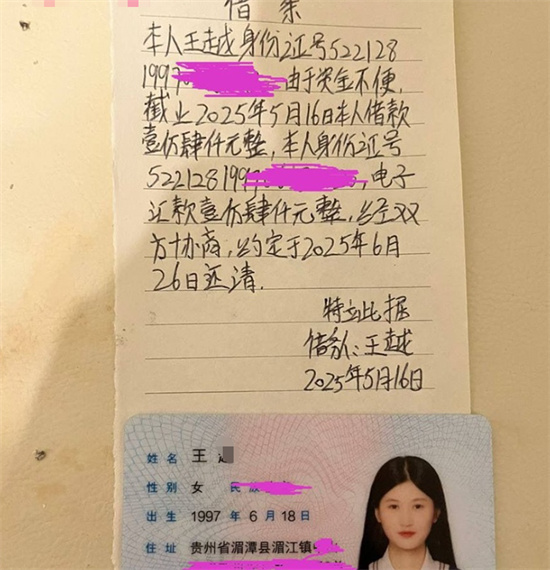 借条
本人王越身份证号522128
199 由于资金不便,
截止2025年5月16日本人借款
壹仿肆仟元整,本人身份证号
522128199 ,电子
汇款壹仿肆仟元整,经双
方协商,约定于2025年6月
26日还清.
特立此据
借 :王越
2025年5月16日
姓名 王
性别 女 民族
出生 1997 年 6 月 18 日
住址 贵州省湄潭县湄江镇